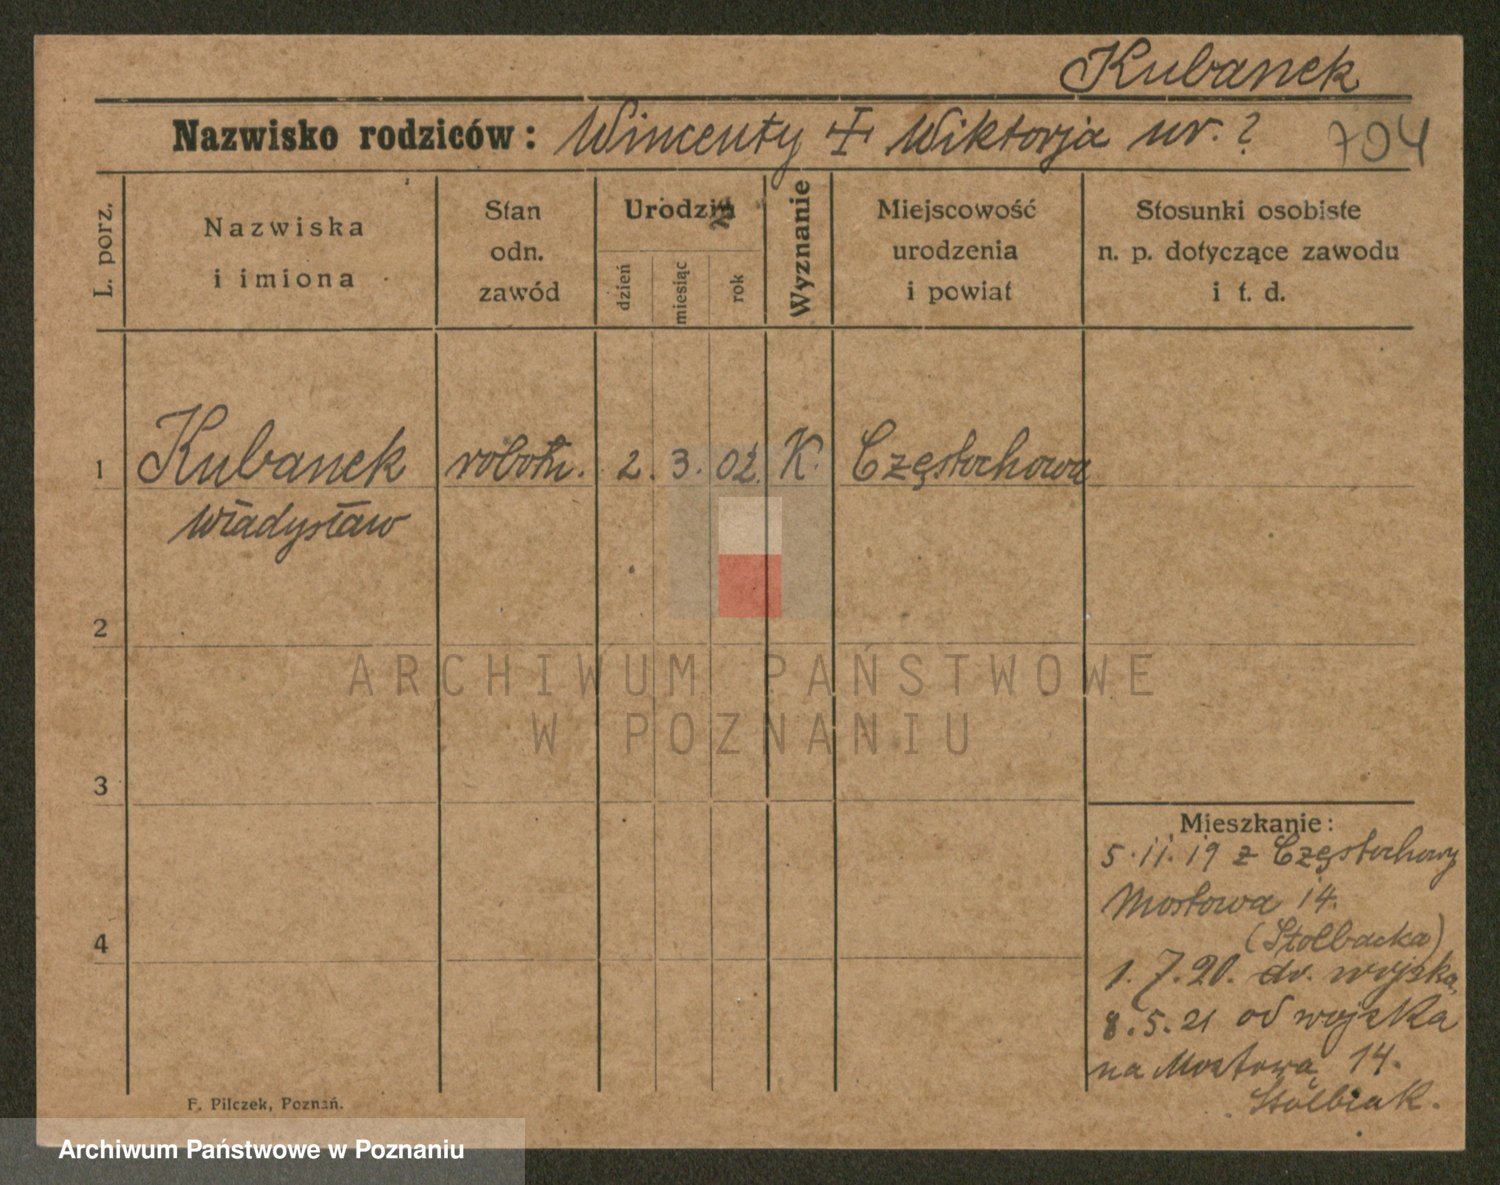 Kubanek
Nazwisko rodziców: Wincenty + Wiktorja ur. ?
704
L. porz.
Nazwiska
i imiona
Stan
odn.
zawód
Urodzin
dzień
miesiąc
rok
Wyznanie
Miejscowość
urodzenia
i powiat
Stosunki osobiste
n. p. dotyczące zawodu
i t. d.
1 Kubanek robotn. 2. 3. 02. K. Częstochowa
Władysław
2
3
4
Mieszkanie:
5.11.19 z Częstochowy
Mostowa 14.
(Stolbacka)
1.7.20. do wojska,
8.5.21 od wojska
na Mostową 14.
Stólbiak.
F. Pilczek, Poznań.
ARCHIWUM PAŃSTWOWE
W POZNANIU
Archiwum Państwowe w Poznaniu